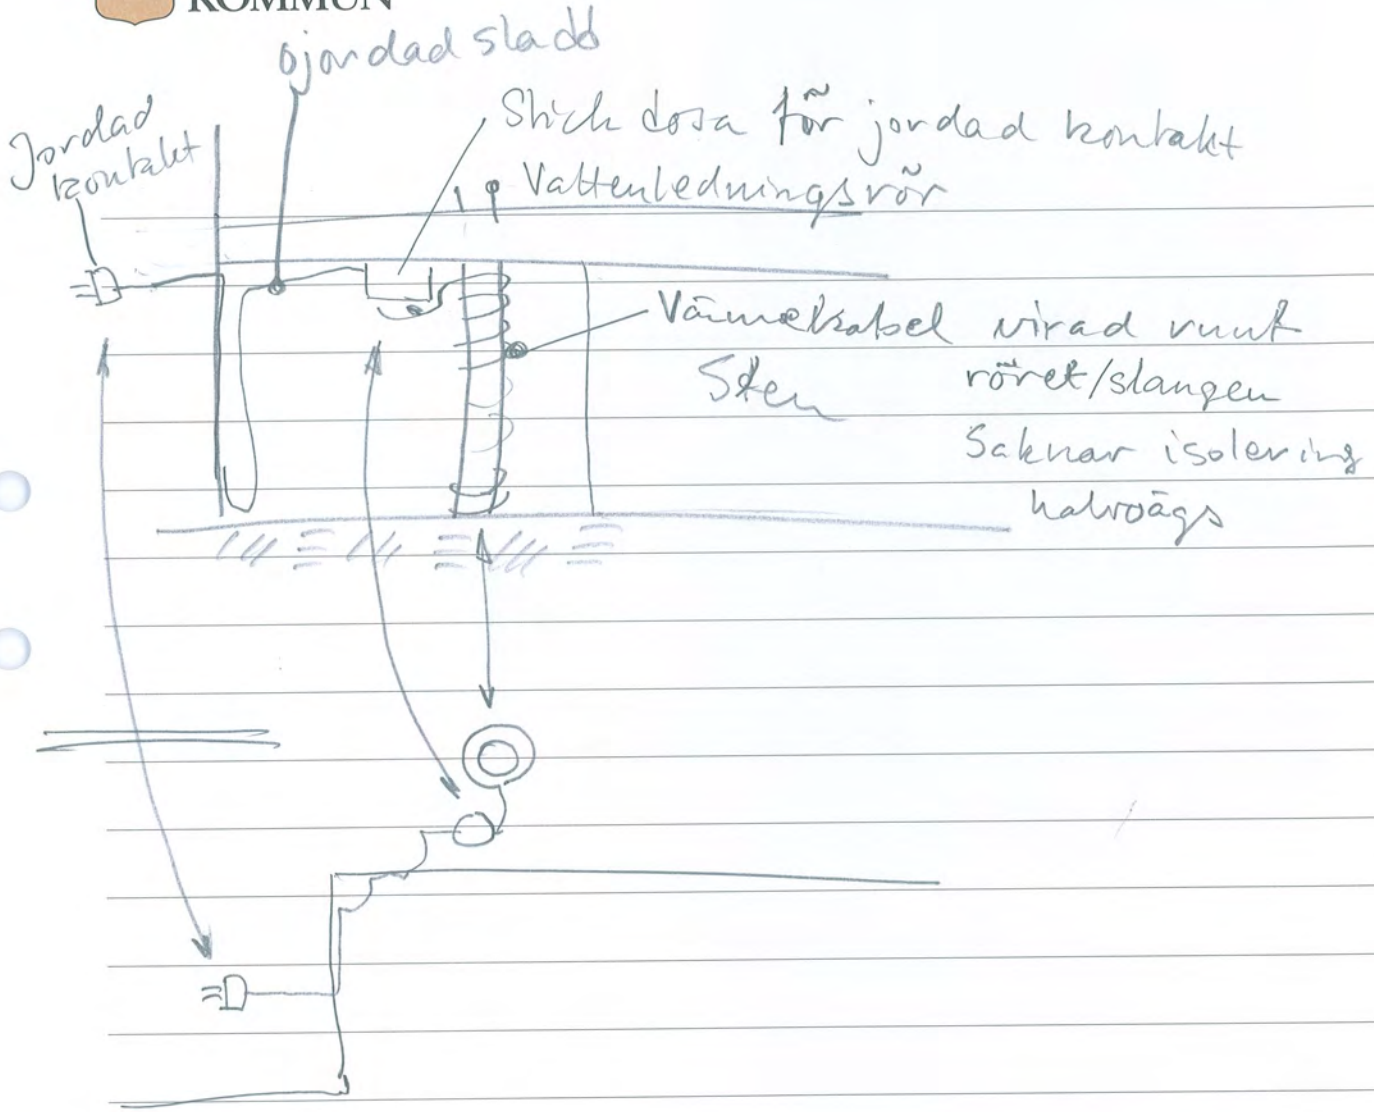 KOMMUN
ojordad sladd
Jordad
kontakt
Stickdosa för jordad kontakt
Vattenledningsrör
Värmekabel virad runt
röret/slangen
Sten
Saknar isolering
halvvägs